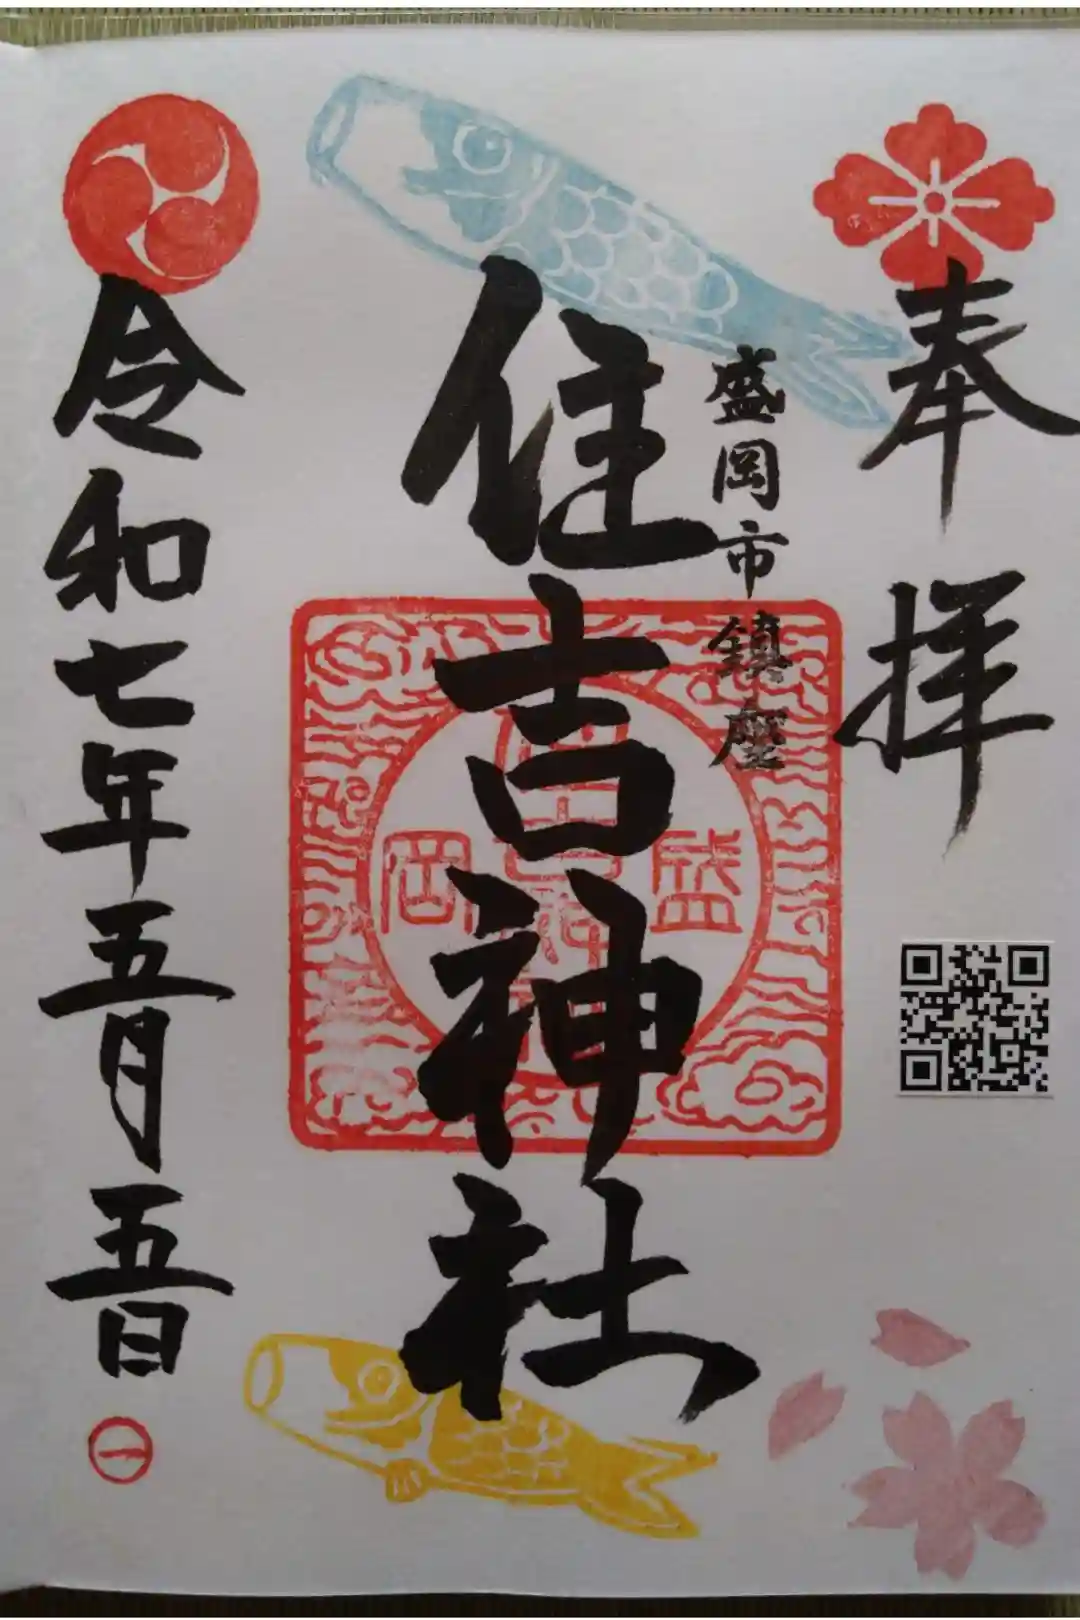 奉拝
盛岡市鎮座
住吉神社
盛岡
令和七年五月五日
一